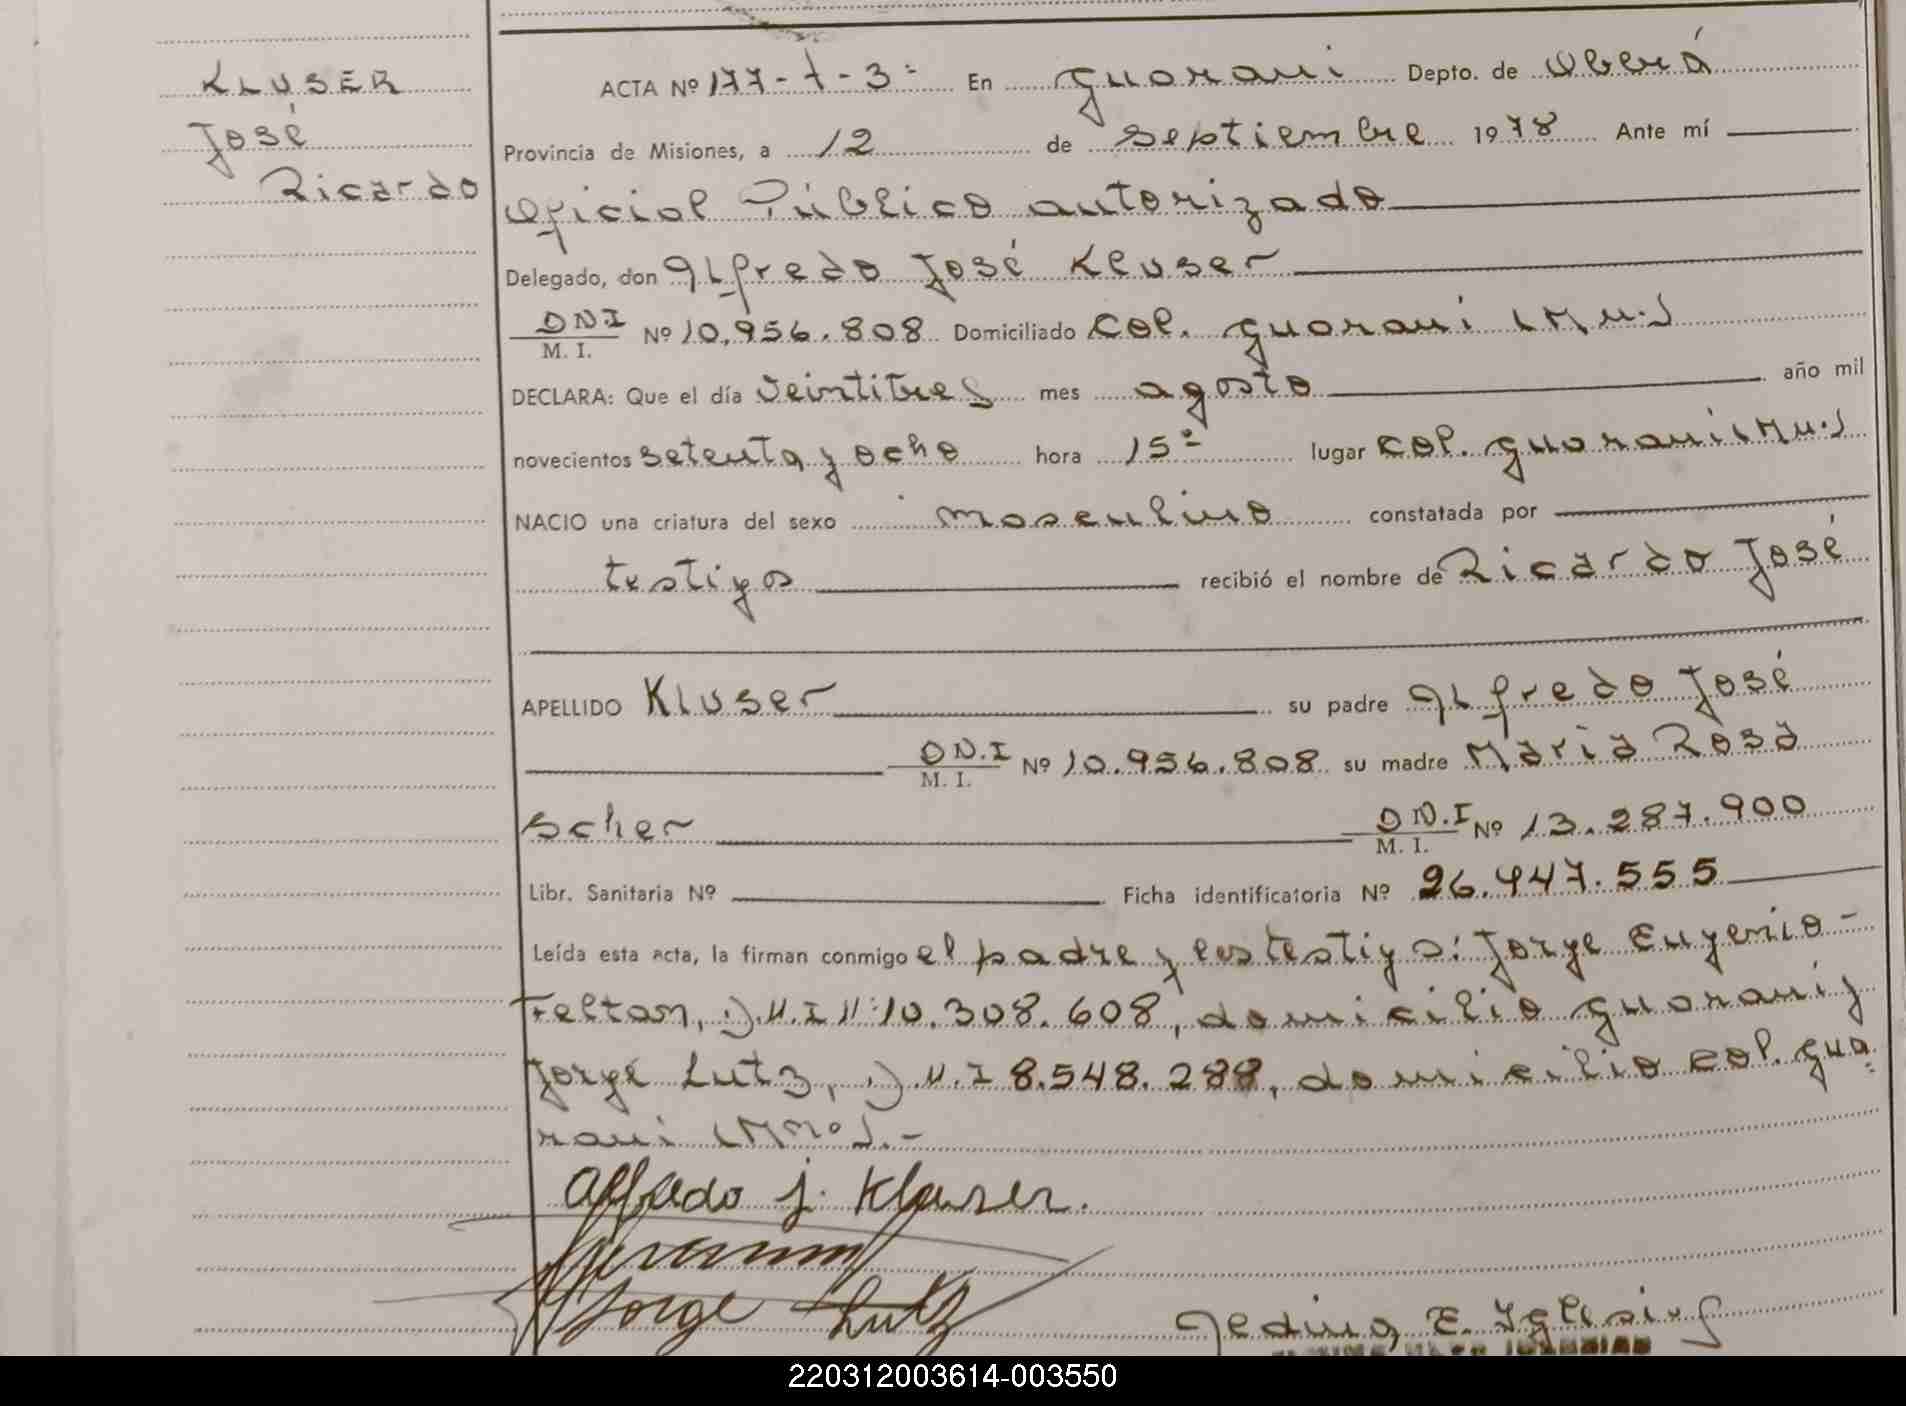 KLUSER
José
Ricardo
ACTA Nº 177-1-3- En Guarani Depto. de Oberá
Provincia de Misiones, a 12 de Septiembre 1978 Ante mí
Oficial Público autorizado
Delegado, don Alfredo José Kluser
DNI
M. I. Nº 10.956.808 Domiciliado Col. Guarani (Mu.)
DECLARA: Que el día veintitres mes agosto año mil
novecientos setenta y ocho hora 15- lugar Col. Guarani (Mu.)
NACIO una criatura del sexo masculino constatada por
testigos recibió el nombre de Ricardo José
APELLIDO Kluser su padre Alfredo José
D.N.I
M. I. Nº 10.956.808 su madre Maria Rosa
Scher D.N.I
M. I. Nº 13.287.900
Libr. Sanitaria Nº Ficha identificatoria Nº 26.447.555
Leída esta acta, la firman conmigo el padre y los testigos: Jorge Eugenio
Feltan, D.N.I Nº 10.308.608, domicilio Guarani y
Jorge Lutz, D.N.I 8.548.288, domicilio Col. Gua
rani (Mno).-
Alfredo J. Kluser.
Jorge Lutz
E. Iglesias
220312003614-003550